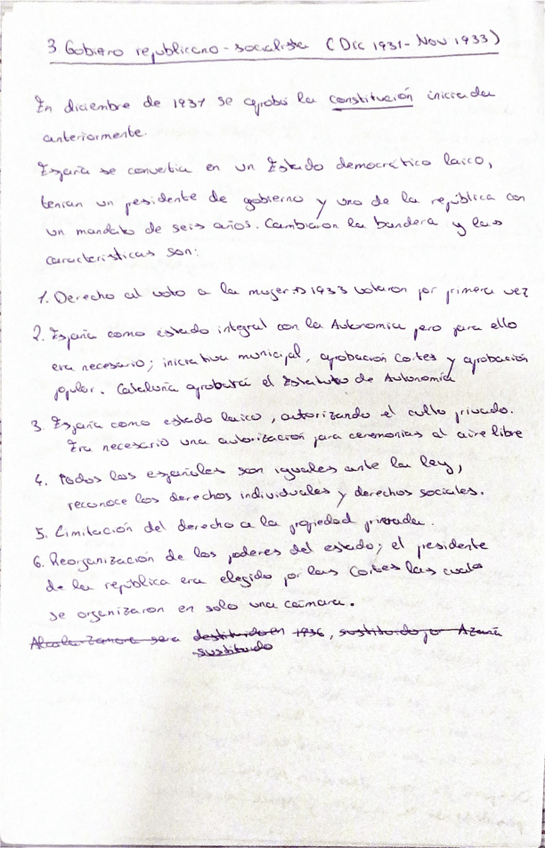 3 Gobierno republicano-socialista (Dic 1931- Nov 1933)
En diciembre de 1931 se aprobó la constitución iniciada
anteriormente.
España se convertia en un Estado democrático laico,
tenian un presidente de gobierno y uno de la república con
un mandato de seis años. Cambiaron la bandera y las
características son:
1. Derecho al voto a la mujer → 1933 votaron por primera vez
2. España como estado integral con la Autonomia pero para ello
era necesario; iniciativa municipal, aprobación Cortes y aprobación
popular. Cataluña aprobará el Estatuto de Autonomía
3. España como estado laico, autorizando el culto privado.
Era necesario una autorización para ceremonias al aire libre
4. Todos los españoles son iguales ante la ley,
reconoce los derechos individuales y derechos sociales.
5. Limitación del derecho a la propiedad privada.
6. Reorganización de los poderes del estado; el presidente
de la república era elegido por las Cortes las cuales
se organizaron en solo una cámara.
Alcala-Zamora sera destituido en 1936, sustituido por Azaña
sustituido